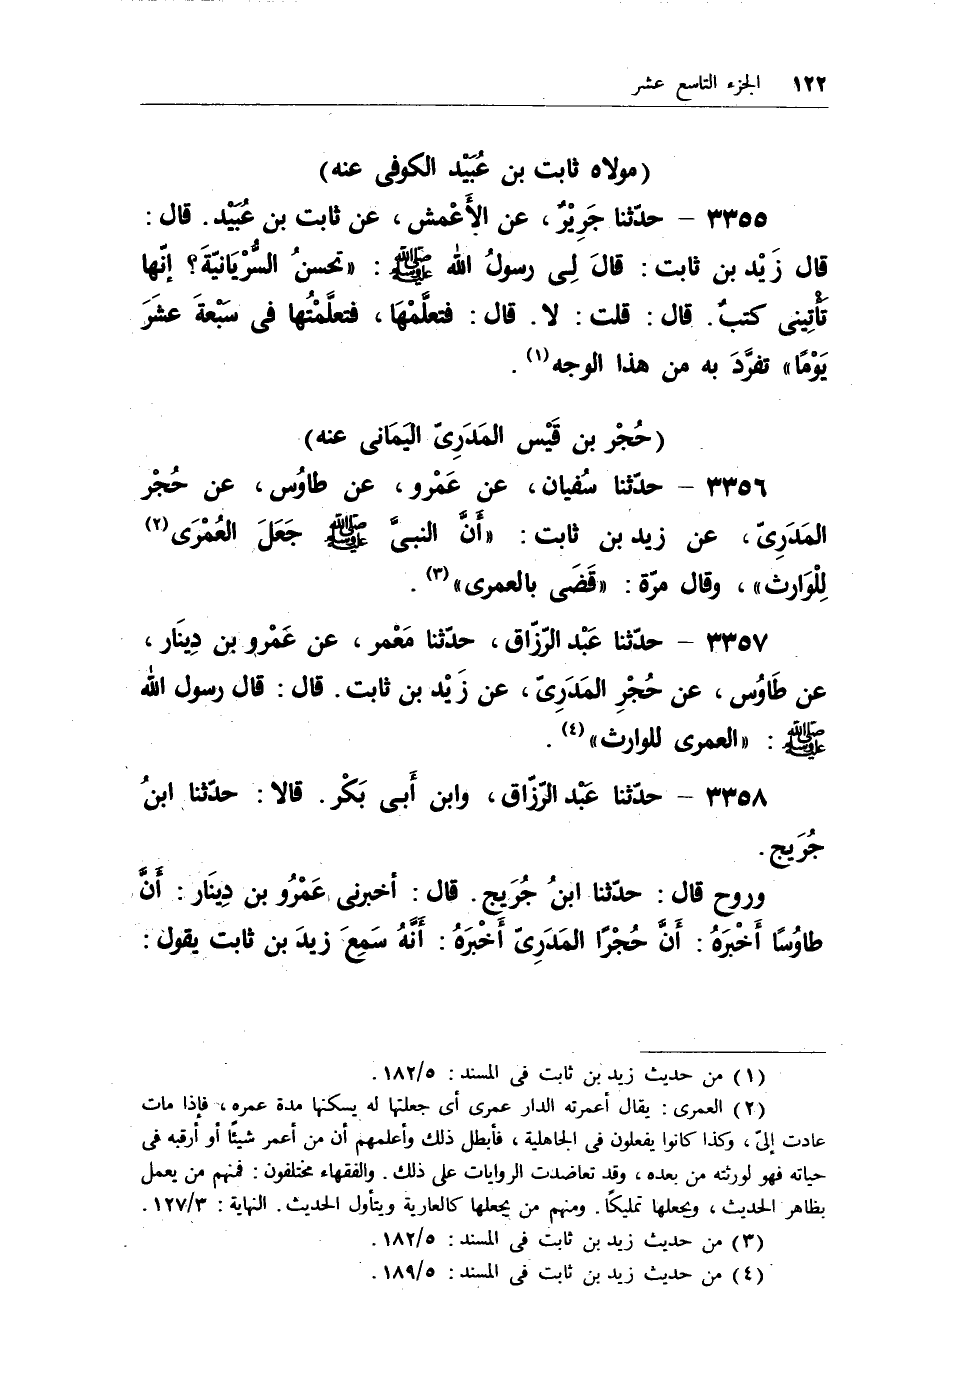 ١٢٢ الجزء التاسع عشر
(مولاه ثابت بن عُبَيْد الكوفى عنه)
٣٣٥٥ – حدّثنا جَرِيْرٌ، عن الأَعْمش، عن ثابت بن عُبَيْد. قال:
قال زَيْد بن ثابت: قالَ لِى رسولُ الله ﷺ: «تحسنُ السُّرْيَانيّةَ؟ إنّها
تَأْتِينى كتبٌ. قال: قلت: لا. قال: فتعلَّمْهَا، فتعلَّمْتُها فى سَبْعةَ عشَرَ
يَوْمًا» تفرَّدَ به من هذا الوجه(١).
(حُجْر بن قَيْس المَدَرِىّ اليَمَانى عنه)
٣٣٥٦ – حدّثنا سُفيان، عن عَمْرو، عن طاوُس، عن حُجْر
المَدَرِىّ، عن زيد بن ثابت: «أَنَّ النبىَّ ﷺ جَعَلَ العُمْرَى(٢)
لِلْوَارث»، وقال مرّة: «قَضَى بالعمرى»(٣).
٣٣٥٧ – حدّثنا عَبْد الرّزّاق، حدّثنا مَعْمر، عن عَمْرو بن دِينَار،
عن طَاوُس، عن حُجْرِ المَدَرِىّ، عن زَيْد بن ثابت. قال: قال رسول الله
ﷺ: «العمرى للوارث»(٤).
٣٣٥٨ – حدّثنا عَبْد الرّزّاق، وابن أَبى بَكْر. قالا: حدّثنا ابنُ
جُرَيج.
وروح قال: حدّثنا ابنُ جُرَيج. قال: أخبرنى عَمْرُو بن دِينَار: أَنَّ
طاوُسًا أَخْبَرَهُ: أَنَّ حُجْرًا المَدَرِىّ أَخْبَرَهُ: أَنَّهُ سَمِعَ زيدَ بن ثابت يقول:
(١) من حديث زيد بن ثابت فى المسند: ١٨٢/٥.
(٢) العمرى: يقال أعمرته الدار عمرى أى جعلتها له يسكنها مدة عمره، فإذا مات
عادت إلىّ، وكذا كانوا يفعلون فى الجاهلية، فأبطل ذلك وأعلمهم أن من أعمر شيئًا أو أرقبه فى
حياته فهو لورثته من بعده، وقد تعاضدت الروايات على ذلك. والفقهاء مختلفون: فمنهم من يعمل
بظاهر الحديث، ويجعلها تمليكًا. ومنهم من يجعلها كالعارية ويتأول الحديث. النهاية: ١٢٧/٣.
(٣) من حديث زيد بن ثابت فى المسند: ١٨٢/٥.
(٤) من حديث زيد بن ثابت فى المسند: ١٨٩/٥.